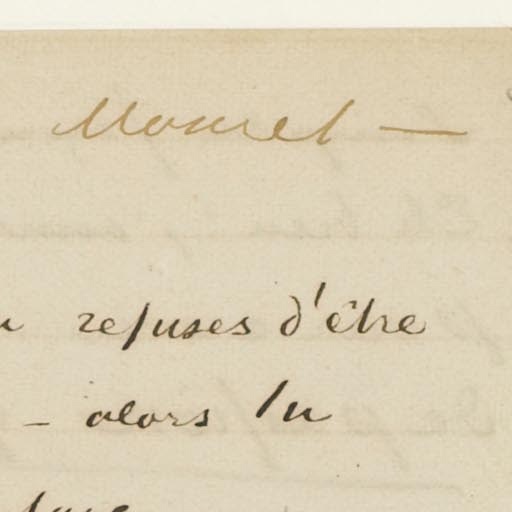 Mouret —
refuses d'être
– alors tu